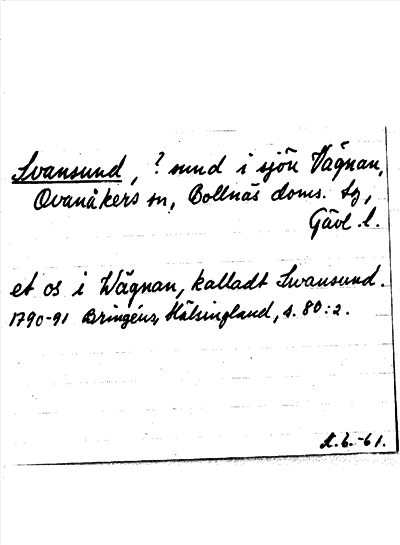 Svansund, ? sund i sjön Vägnan,
Ovanåkers sn, Bollnäs doms. tg,
Gävl. l.
et os i Wägnan, kalladt Swansund.
1790-91 Bringéus, Hälsingland, s. 80:2.
-61.